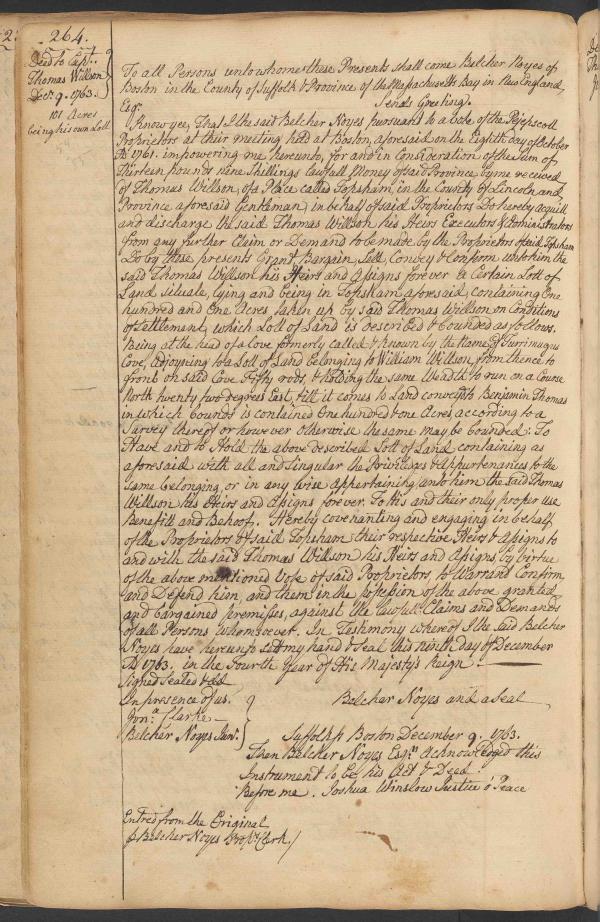 264.
Deed to Capt.
Thomas Willson
Decr. 9. 1763.
101 Acres
being his own Lott
To all Persons unto whome these Presents shall come Belcher Noyes of
Boston in the County of Suffolk & Province of the Massachusetts Bay in New England,
Esqr. Sends Greeting.
Know yee, That I the said Belcher Noyes pursuant to a Vote of the Pejepscott
Proprietors at their meeting held at Boston, aforesaid on the Eighth day of October
AD 1761. impowering me hereunto, for and in Consideration of the Sum of
Thirteen pounds nine Shillings Lawfull Money of said Province, by me received
of Thomas Willson, of a Place called Topsham, in the County of Lincoln and
Province aforesaid Gentleman, in behalf of said Proprietors Do hereby acquitt
and discharge the said Thomas Willson his Heirs Executors & Administrators
from any further Claim or Demand to be made by the Proprietors of said Topsham
Do by these presents Grant, Bargain, Sell, Convey & Confirm unto him the
said Thomas Willson his Heirs and Assigns forever a Certain Lott of
Land situate, lying and being in Topsham aforesaid, containing One
hundred and One Acres taken up by said Thomas Willson on Conditions
of Settlement, which Lott of Land is described & bounded as follows.
Being at the head of a Cove formerly called & known by the Name of Turrimugus
Cove, adjoyning to a Lott of Land belonging to William Willson, from thence to
front on said Cove Fifty rods, & holding the same Weadth to run on a Course
North twenty two degrees East, till it comes to Land convey'd to Benjamin Thomas
in which bounds is contained One hundred & one Acres, according to a
Survey thereof or however otherwise the same may be bounded: To
Have and to Hold the above described Lott of Land, containing as
aforesaid with all and singular the Priviledges & Appurtenances to the
same belonging, or in any wise appertaining, unto him the said Thomas
Willson his Heirs and Assigns forever. To His and their only proper use
Benefitt and Behoof. Hereby covenanting and engaging in behalf
of the Proprietors of said Topsham their respective Heirs & Assigns to
and with the said Thomas Willson his Heirs and Assigns by virtue
of the above mentioned Vote of said Proprietors, to Warrand Confirm,
and Defend him, and them in the possession of the above granted
and bargained premisses, against the lawfull Claims and Demands
of all Persons whomsoever. In Testimony whereof I the said Belcher
Noyes have hereunto sett my hand & Seal this ninth day of December
AD 1763. in the Fourth Year of His Majesty's Reign.
Signed Sealed &
In presence of us.
Belcher Noyes and a Seal
Jona. Clarke
Belcher Noyes Junr.
Suffolk ss Boston December 9. 1763.
Then Belcher Noyes Esqr. Acknowledged this
Instrument to be his Act & Deed.
Before me. Joshua Winslow Justice o' Peace
Entred from the Original
Belcher Noyes Propr. Clerk.